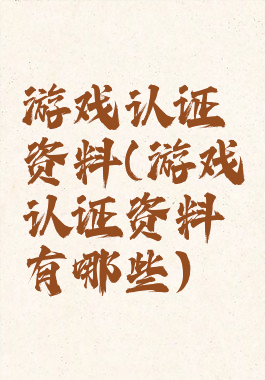 游戏认证
资料(游戏
认证资料
有哪些)